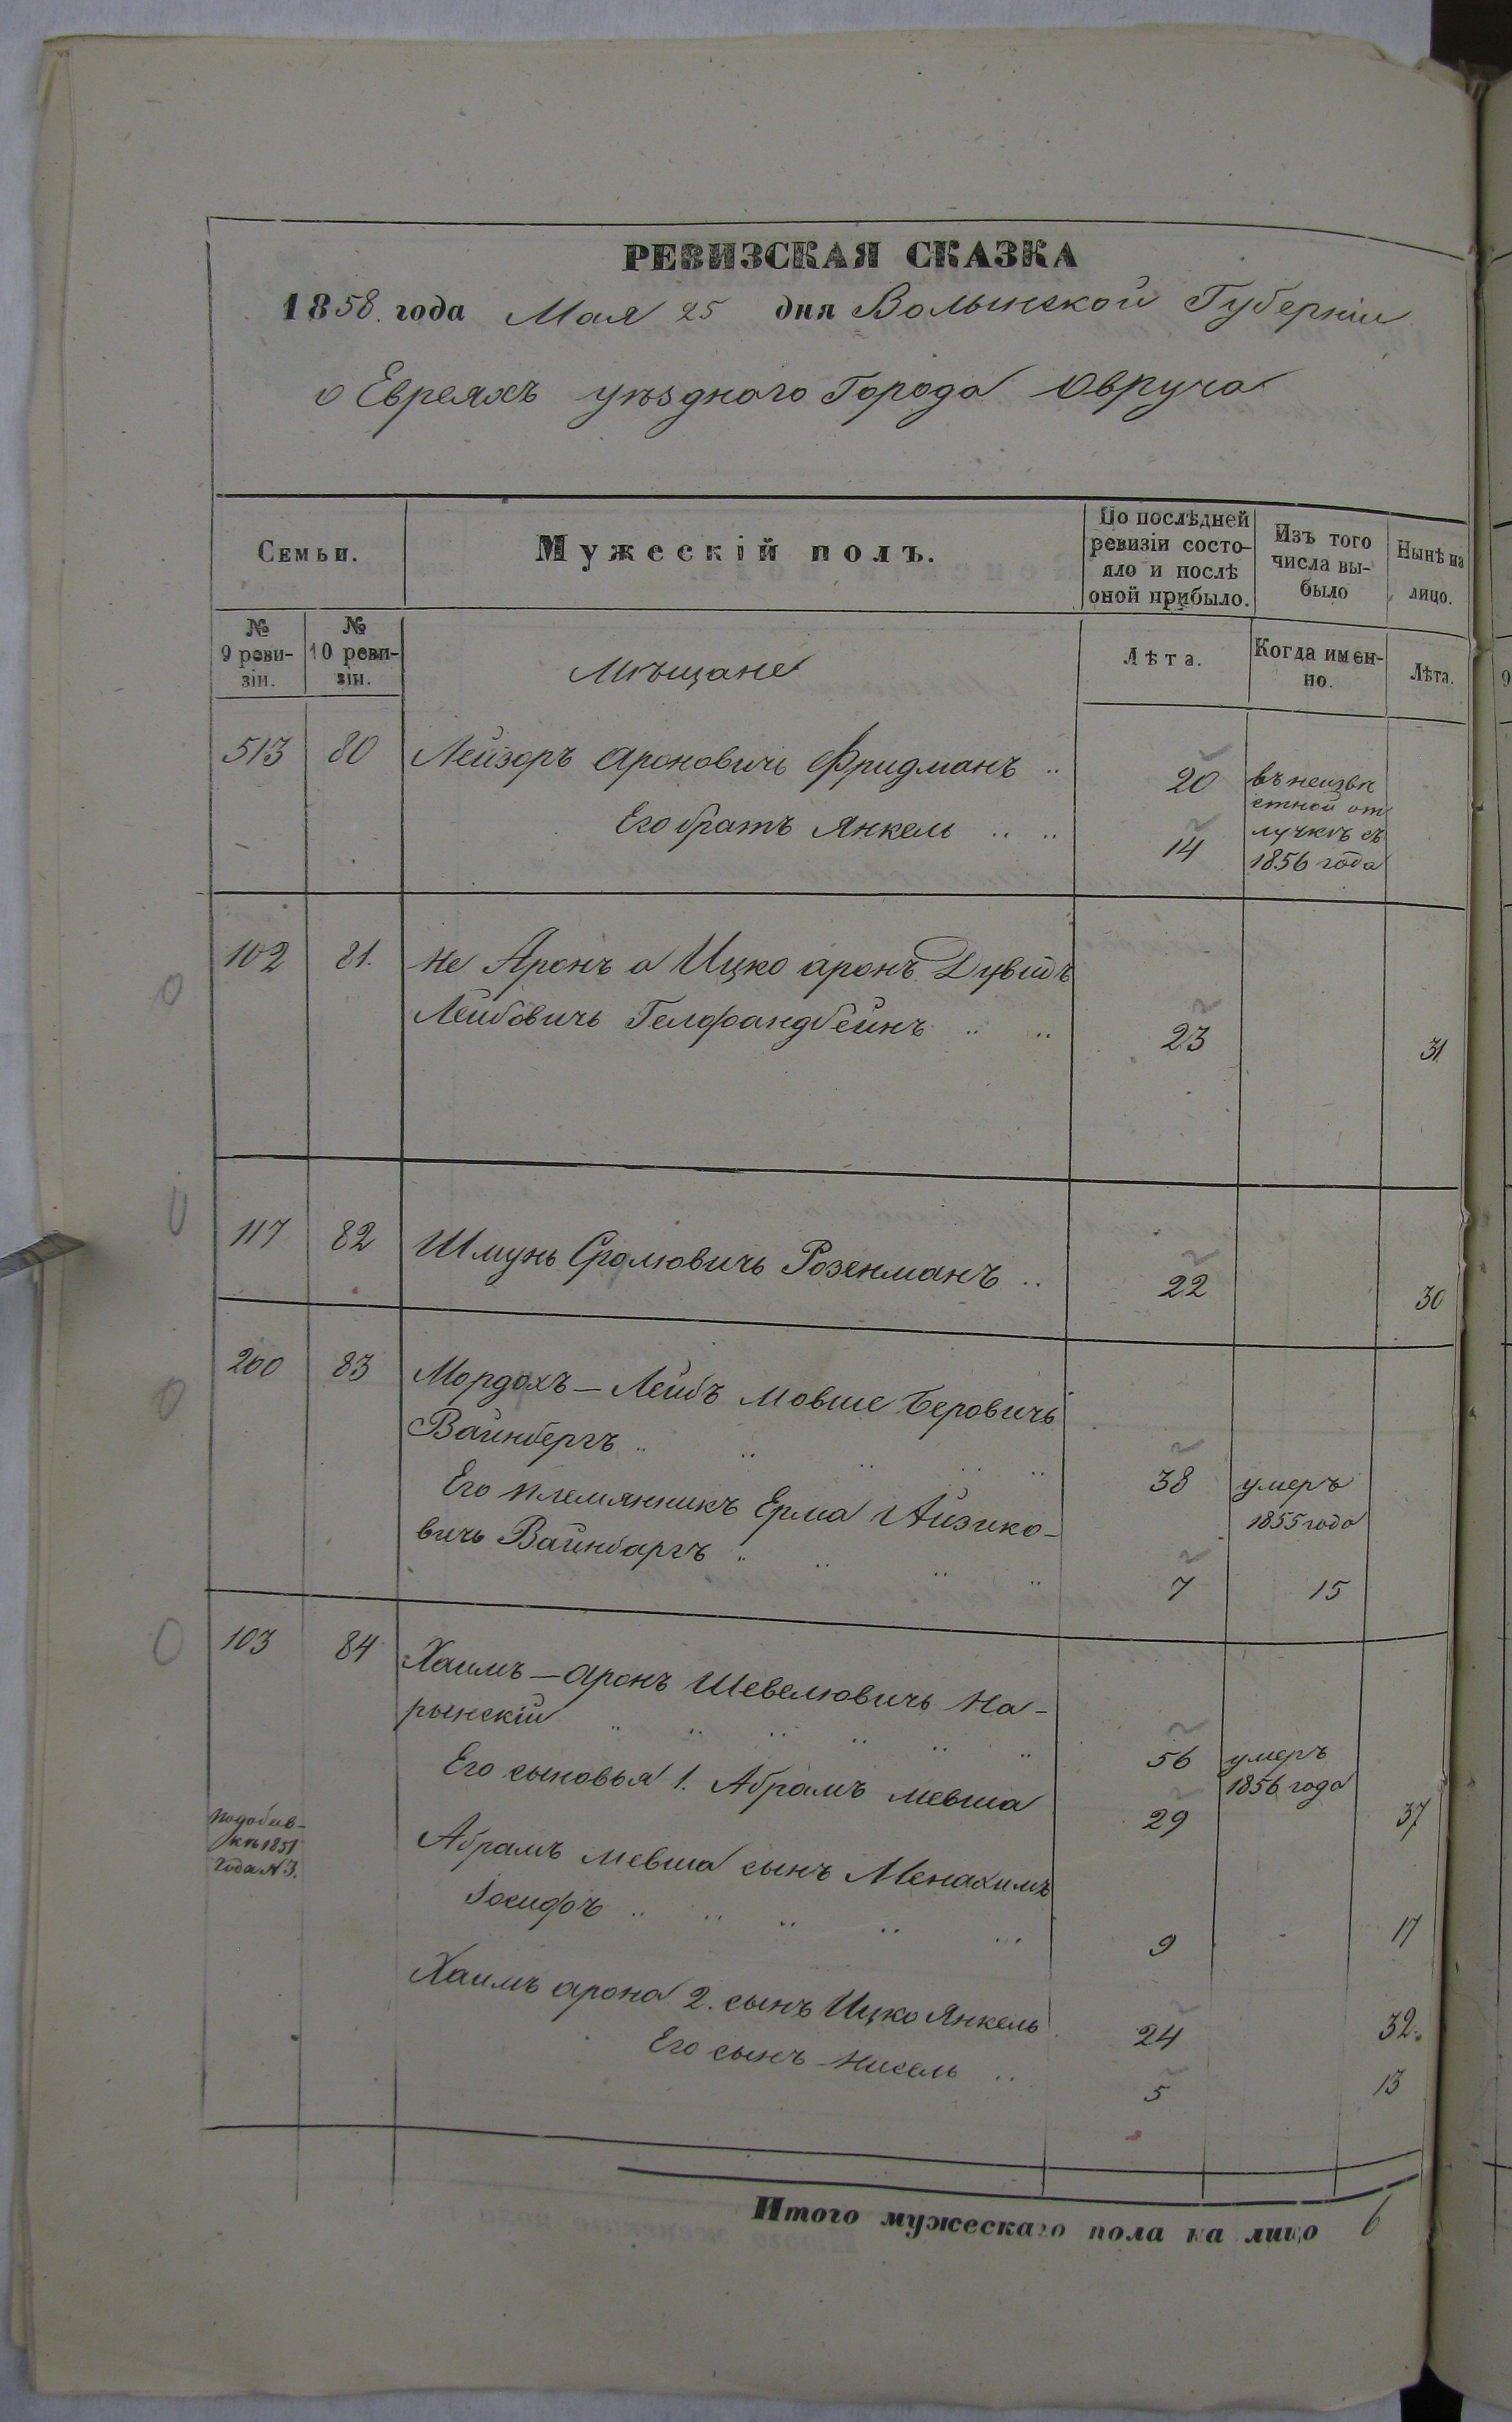 РЕВИЗСКАЯ СКАЗКА
1858. года Мая 25 дня Волынской Губерніи
о Евреяхъ уѣзднаго Города Овруча
Семьи.
Мужескій полъ.
По послѣдней
ревизіи состо-
яло и послѣ
оной прибыло.
Изъ того
числа вы-
было
Нынѣ на
лицо.
№
9 реви-
зіи.
№
10 реви-
зіи.
Мѣщане
Лѣта.
Когда имен-
но.
Лѣта.
513 80 Лейзоръ Ароновичъ Фридманъ .. 20
Его братъ Янкель .. .. 14
въ неизвѣ
стной от
лучкѣ съ
1856 года
102 81. Не Аронъ а Ицко аронъ Дувидъ
Лейбовичъ Гелфандбейнъ .. .. 23 31.
117 82 Шмунь Сролювичъ Розенманъ .. 22 30
200 83 Мордохъ-Лейбъ Мовше Беровичъ
Вайнбергъ .. .. .. .. .. 38 умеръ
1855 года
Его племянникъ Ерма Айзико-
вичъ Вайнбаргъ .. .. .. .. 7 15
103 84 Хаимъ-аронъ Шевелювичъ На-
рынскій .. .. .. .. .. .. 56 умеръ
1856 года
Его сыновья 1. Абрамъ мевша 29 37
подобив-
кѣ 1851
года N 3.
Абрамъ мевша сынъ Менахимъ
Іосифъ .. .. .. .. .. 9 17
Хаимъ арона 2. сынъ Ицко Янкель 24 32.
Его сынъ Нисель .. 5 13
Итого мужескаго пола на лицо 6